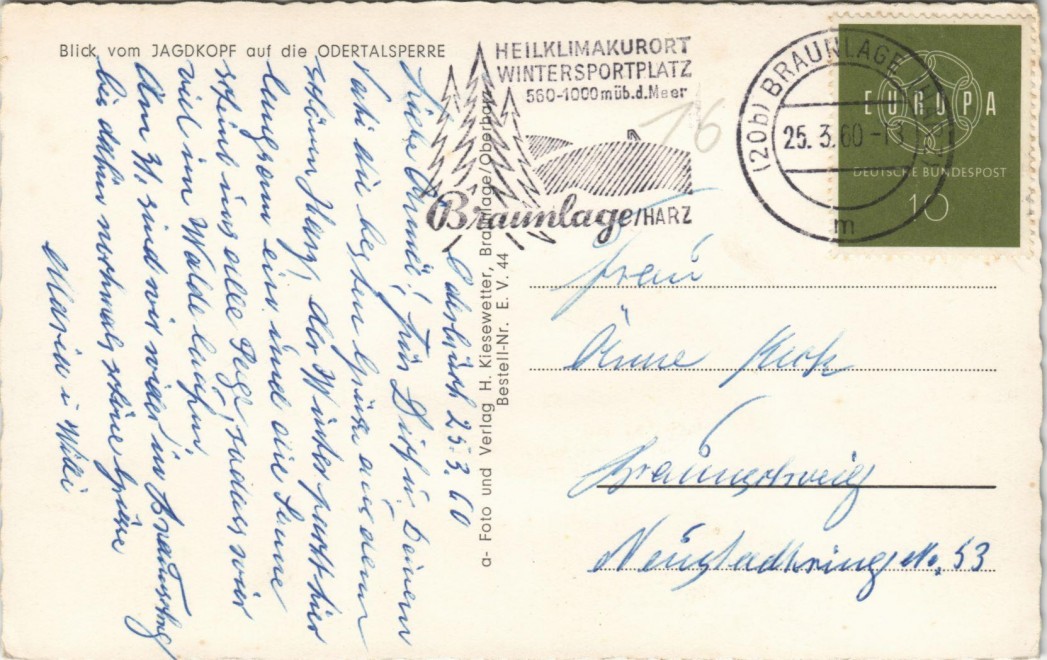 Blick vom JAGDKOPF auf die ODERTALSPERRE
HEILKLIMAKURORT
WINTERSPORTPLATZ
560-1000 m üb.d.Meer
Braunlage/HARZ
(20b) BRAUNLAGE (HARZ)
25. 3. 60
m
EUROPA
DEUTSCHE BUNDESPOST
10
16
a- Foto und Verlag H. Kiesewetter, Braunlage/Oberharz
Bestell-Nr. E. V. 44
25.3.60
Liebe Änne! Für Dich u. Deinen
Vati die besten Grüße aus dem
schönen Harz, der Winter hier
langsam ein und die Sonne
scheint uns alle Tage, sodass wir
viel im Walde laufen.
Am 31. sind wir wieder in Braunschg
bis dahin nochmals schöne Grüße
u. Willi
Frau
Änne
Braunschweig
Neustadtring No. 53